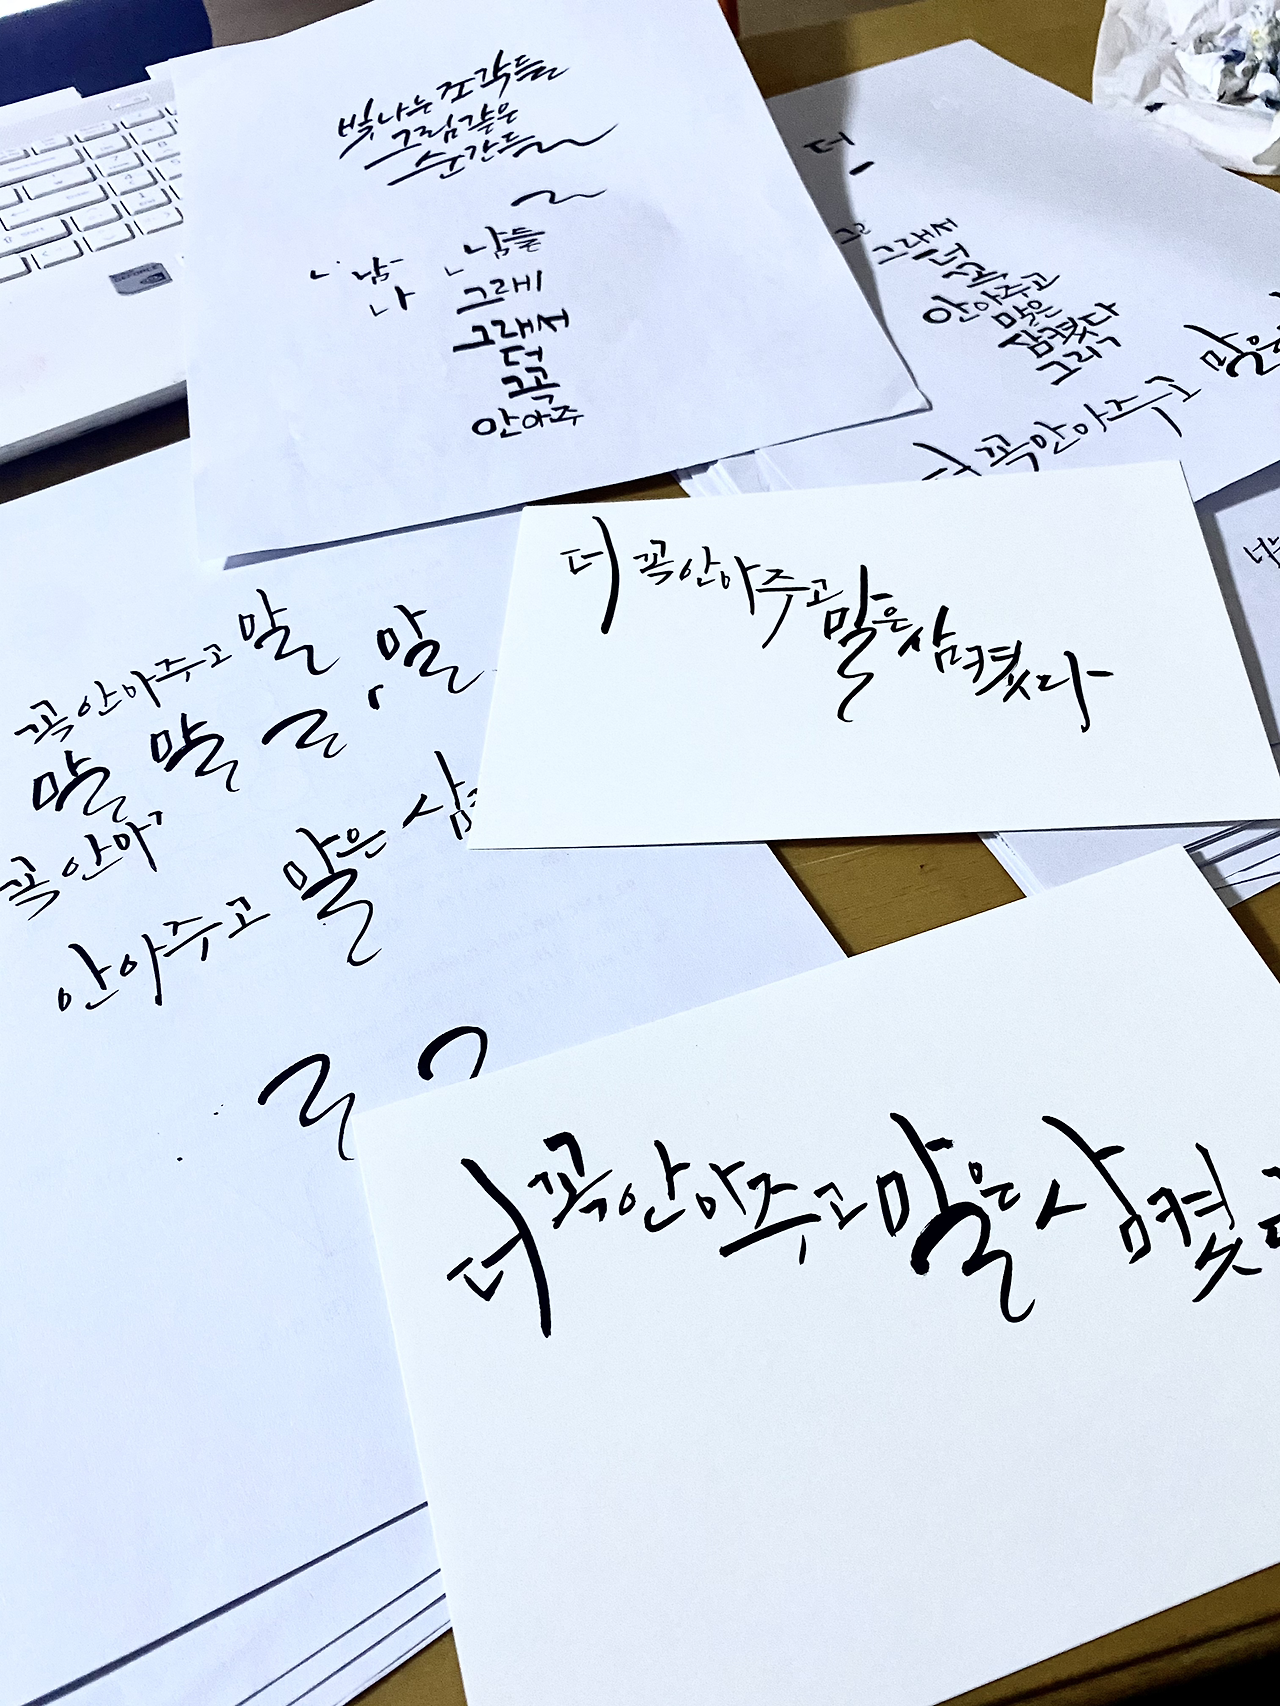 빛나는 조각들
그림같은
순간들
남들
남
나
그래
그래서
더
꼭
안아주
더
그래서
더
꼭
안아주고
말은
삼켰다
그리
말은
더 꼭 안아주고
더 꼭 안아주고 말은 삼켰다
꼭 안아주고 말 말
말 말 ㄹ
꼭 안아
안아주고 말은 삼
ㄹ
더 꼭 안아주고 말은 삼켰